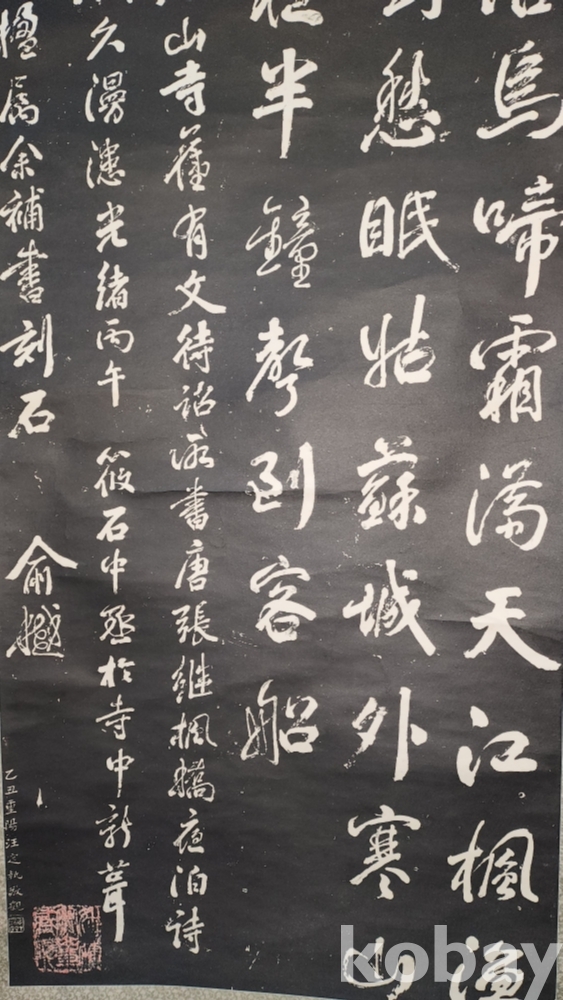 烏啼霜滿天江楓漁
愁眠姑蘇城外寒山
夜半鐘聲到客船
山寺舊有文待詔所書唐張繼楓橋夜泊詩
久漫漶光緒丙午筱石中丞於寺中新葺
楹屬余補書刻石 俞樾
乙丑重陽汪
kobay